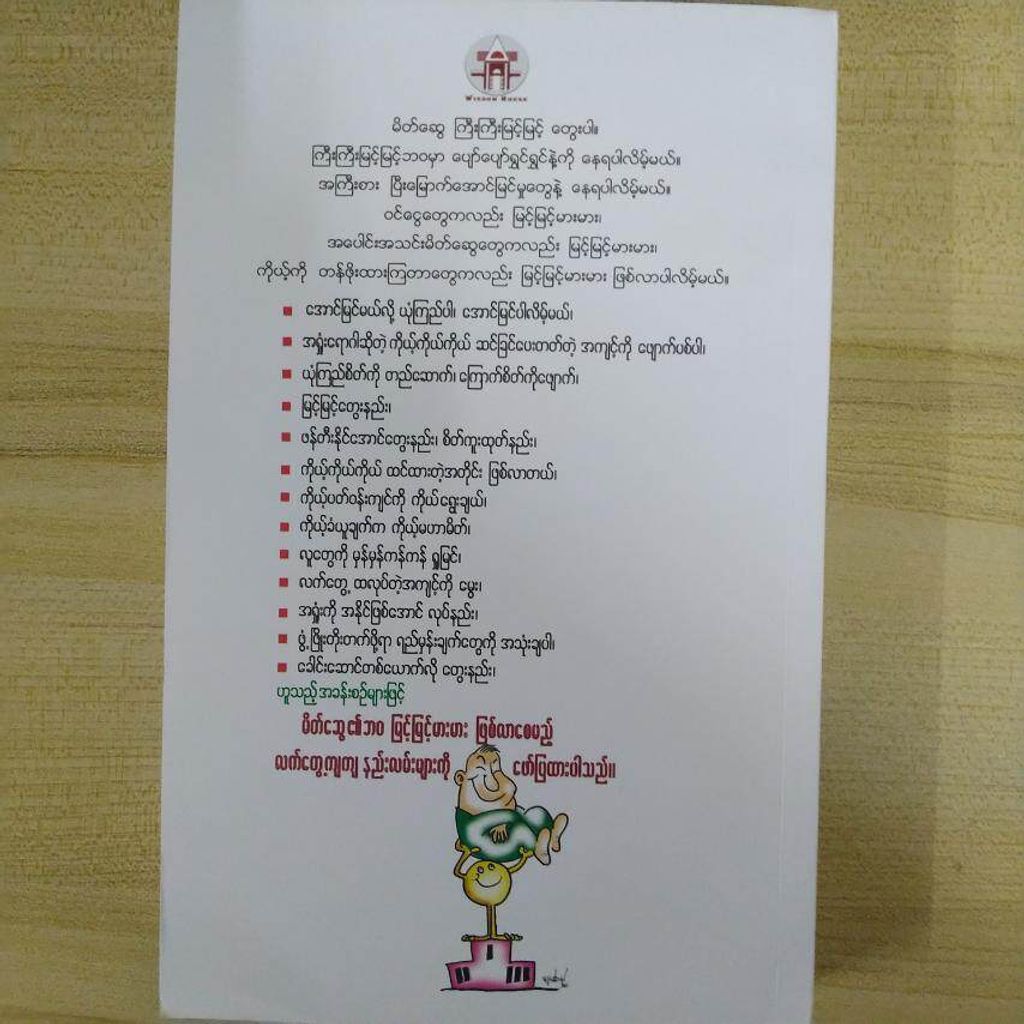 WISDOM HOUSE
မိတ်ဆွေ ကြီးကြီးမြင့်မြင့် တွေးပါ။
ကြီးကြီးမြင့်မြင့်ဘဝမှာ ပျော်ပျော်ရွှင်ရွှင်နဲ့ကို နေရပါလိမ့်မယ်။
အကြီးစား ပြီးမြောက်အောင်မြင်မှုတွေနဲ့ နေရပါလိမ့်မယ်။
ဝင်ငွေတွေကလည်း မြင့်မြင့်မားမား၊
အပေါင်းအသင်းမိတ်ဆွေတွေကလည်း မြင့်မြင့်မားမား၊
ကိုယ့်ကို တန်ဖိုးထားကြတာတွေကလည်း မြင့်မြင့်မားမား ဖြစ်လာပါလိမ့်မယ်။
အောင်မြင်မယ်လို့ ယုံကြည်ပါ၊ အောင်မြင်ပါလိမ့်မယ်၊
အရှုံးရောဂါဆိုတဲ့ ကိုယ့်ကိုယ်ကိုယ် ဆင်ခြင်ပေးတတ်တဲ့ အကျင့်ကို ဖျောက်ပစ်ပါ၊
ယုံကြည်စိတ်ကို တည်ဆောက်၊ ကြောက်စိတ်ကိုဖျောက်၊
မြင့်မြင့်တွေးနည်း၊
ဖန်တီးနိုင်အောင်တွေးနည်း၊ စိတ်ကူးထုတ်နည်း၊
ကိုယ့်ကိုယ်ကိုယ် ထင်ထားတဲ့အတိုင်း ဖြစ်လာတယ်၊
ကိုယ့်ပတ်ဝန်းကျင်ကို ကိုယ်ရွေးချယ်၊
ကိုယ့်ခံယူချက်က ကိုယ့်မဟာမိတ်၊
လူတွေကို မှန်မှန်ကန်ကန် ရှုမြင်၊
လက်တွေ့ ထလုပ်တဲ့အကျင့်ကို မွေး၊
အရှုံးကို အနိုင်ဖြစ်အောင် လုပ်နည်း၊
ဖွံ့ဖြိုးတိုးတက်ဖို့ရာ ရည်မှန်းချက်တွေကို အသုံးချပါ၊
ခေါင်းဆောင်တစ်ယောက်လို တွေးနည်း၊
ဟူသည့်အခန်းစဉ်များဖြင့်
မိတ်ဆွေ၏ဘဝ မြင့်မြင့်မားမား ဖြစ်လာစေမည့်
လက်တွေ့ကျကျ နည်းလမ်းများကို ဖော်ပြထားပါသည်။
1